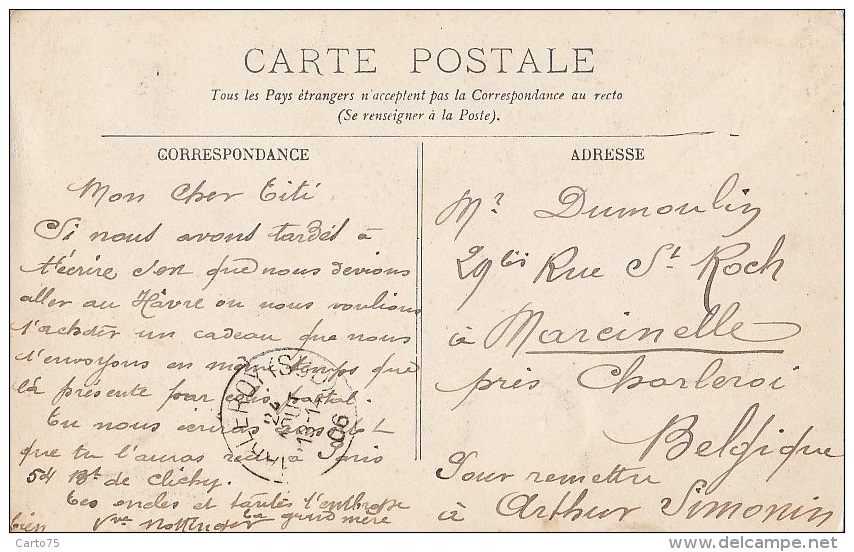 CARTE POSTALE
Tous les Pays étrangers n'acceptent pas la Correspondance au recto
(Se renseigner à la Poste).
CORRESPONDANCE
Mon cher Titi
Si nous avons tardés à
t'écrire c'est que nous devions
aller au Hâvre ou nous voulions
t'acheter un cadeau que nous
t'envoyons en même temps que
la présente par colis postal.
Tu nous écriras aussitôt
que tu l'auras reçu à Paris
54 Bt de Clichy.
Tes oncles et tantes t'embrasse
bien
Vve
ta grand mère
ADRESSE
Mr Dumoulin
29bis Rue St Roch
à Marcinelle
près Charleroi
Belgique
Pour remettre
à Arthur Simonin
CHARLEROY (SUD)
24
AOUT
13-14
1906
Carto75
delcampe.net